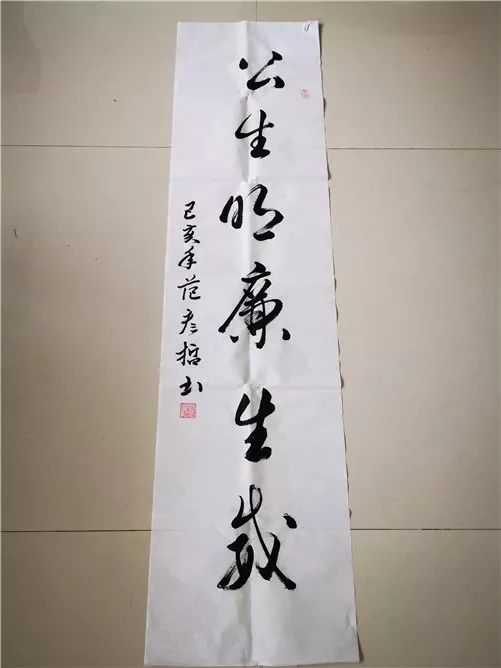 公生明廉生威
己亥年范彦哲书